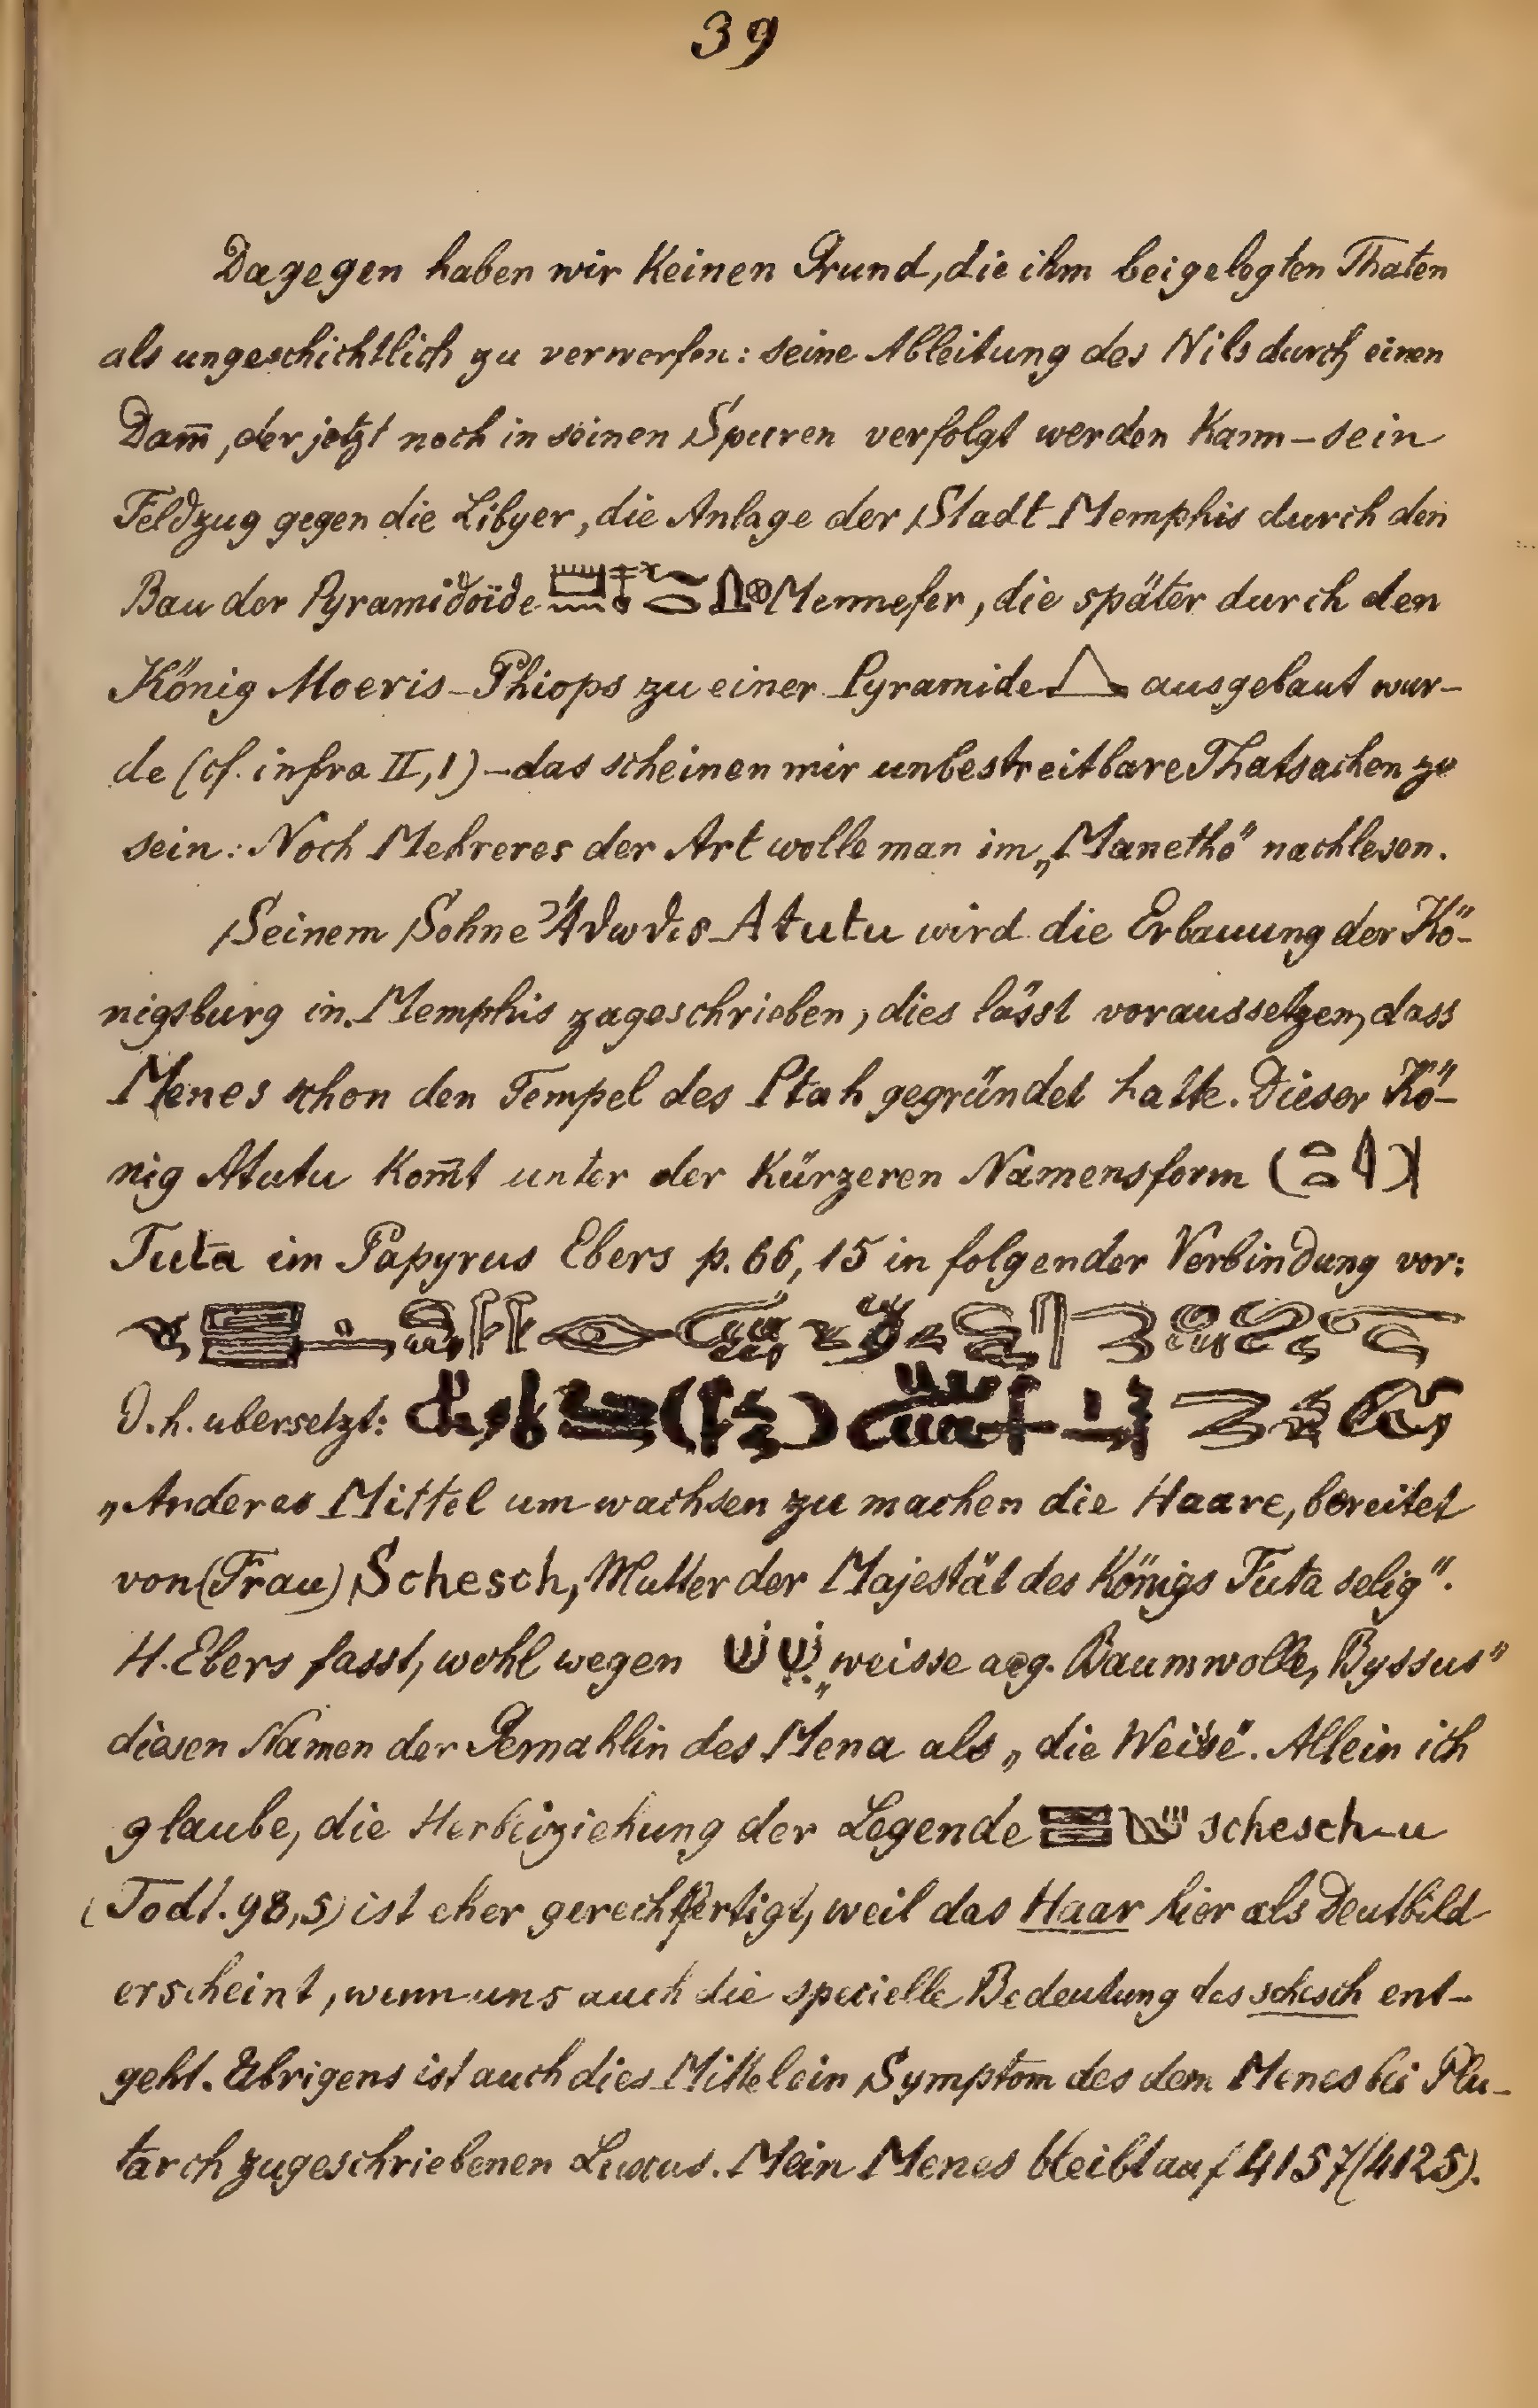 39
Dagegen haben wir Keinen Grund, die ihm beigelegten Thaten
als ungeschichtlich zu verwerfen: seine Ableitung des Nils durch einen
Dam̅, der jetzt noch in seinen Spuren verfolgt werden Kann – sein
Feldzug gegen die Libyer, die Anlage der Stadt Memphis durch den
Bau der Pyramidoïde Mennefer, die später durch den
König Moeris-Phiops zu einer Pyramide ausgebaut wur-
de (cf. infra II,1) – das scheinen mir unbestreitbare Thatsachen zu
sein: Noch Mehreres der Art wolle man im „Manetho" nachlesen.
Seinem Sohne Ἄϑωϑις Atutu wird die Erbauung der Kö-
nigsburg in Memphis zugeschrieben, dies lässt voraussetzen, dass
Menes schon den Tempel des Ptah gegründet hatte. Dieser Kö-
nig Atutu Kom̅t unter der Kürzeren Namensform
Tuta im Papyrus Ebers p. 66, 15 in folgender Verbindung vor:
d. h. ubersetzt:
„Anderes Mittel um wachsen zu machen die Haare, bereitet
von (Frau) Schesch, Mutter der Majestät des Königs Tuta selig".
H. Ebers fasst, wohl wegen שׁשׁ „weisse aeg. Baumwolle, Byssus"
diesen Namen der Gemahlin des Mena als „die Weise". Allein ich
glaube, die Herbeiziehung der Legende schesch-u
(Todt. 98,5) ist eher gerechtfertigt, weil das Haar hier als Deutbild
erscheint, wenn uns auch die specielle Bedeutung des schesch ent-
geht. Übrigens ist auch dies Mittel ein Symptom des dem Menes bei Plu-
tarch zugeschriebenen Luxus. Mein Menes bleibt auf 4157 (4125).